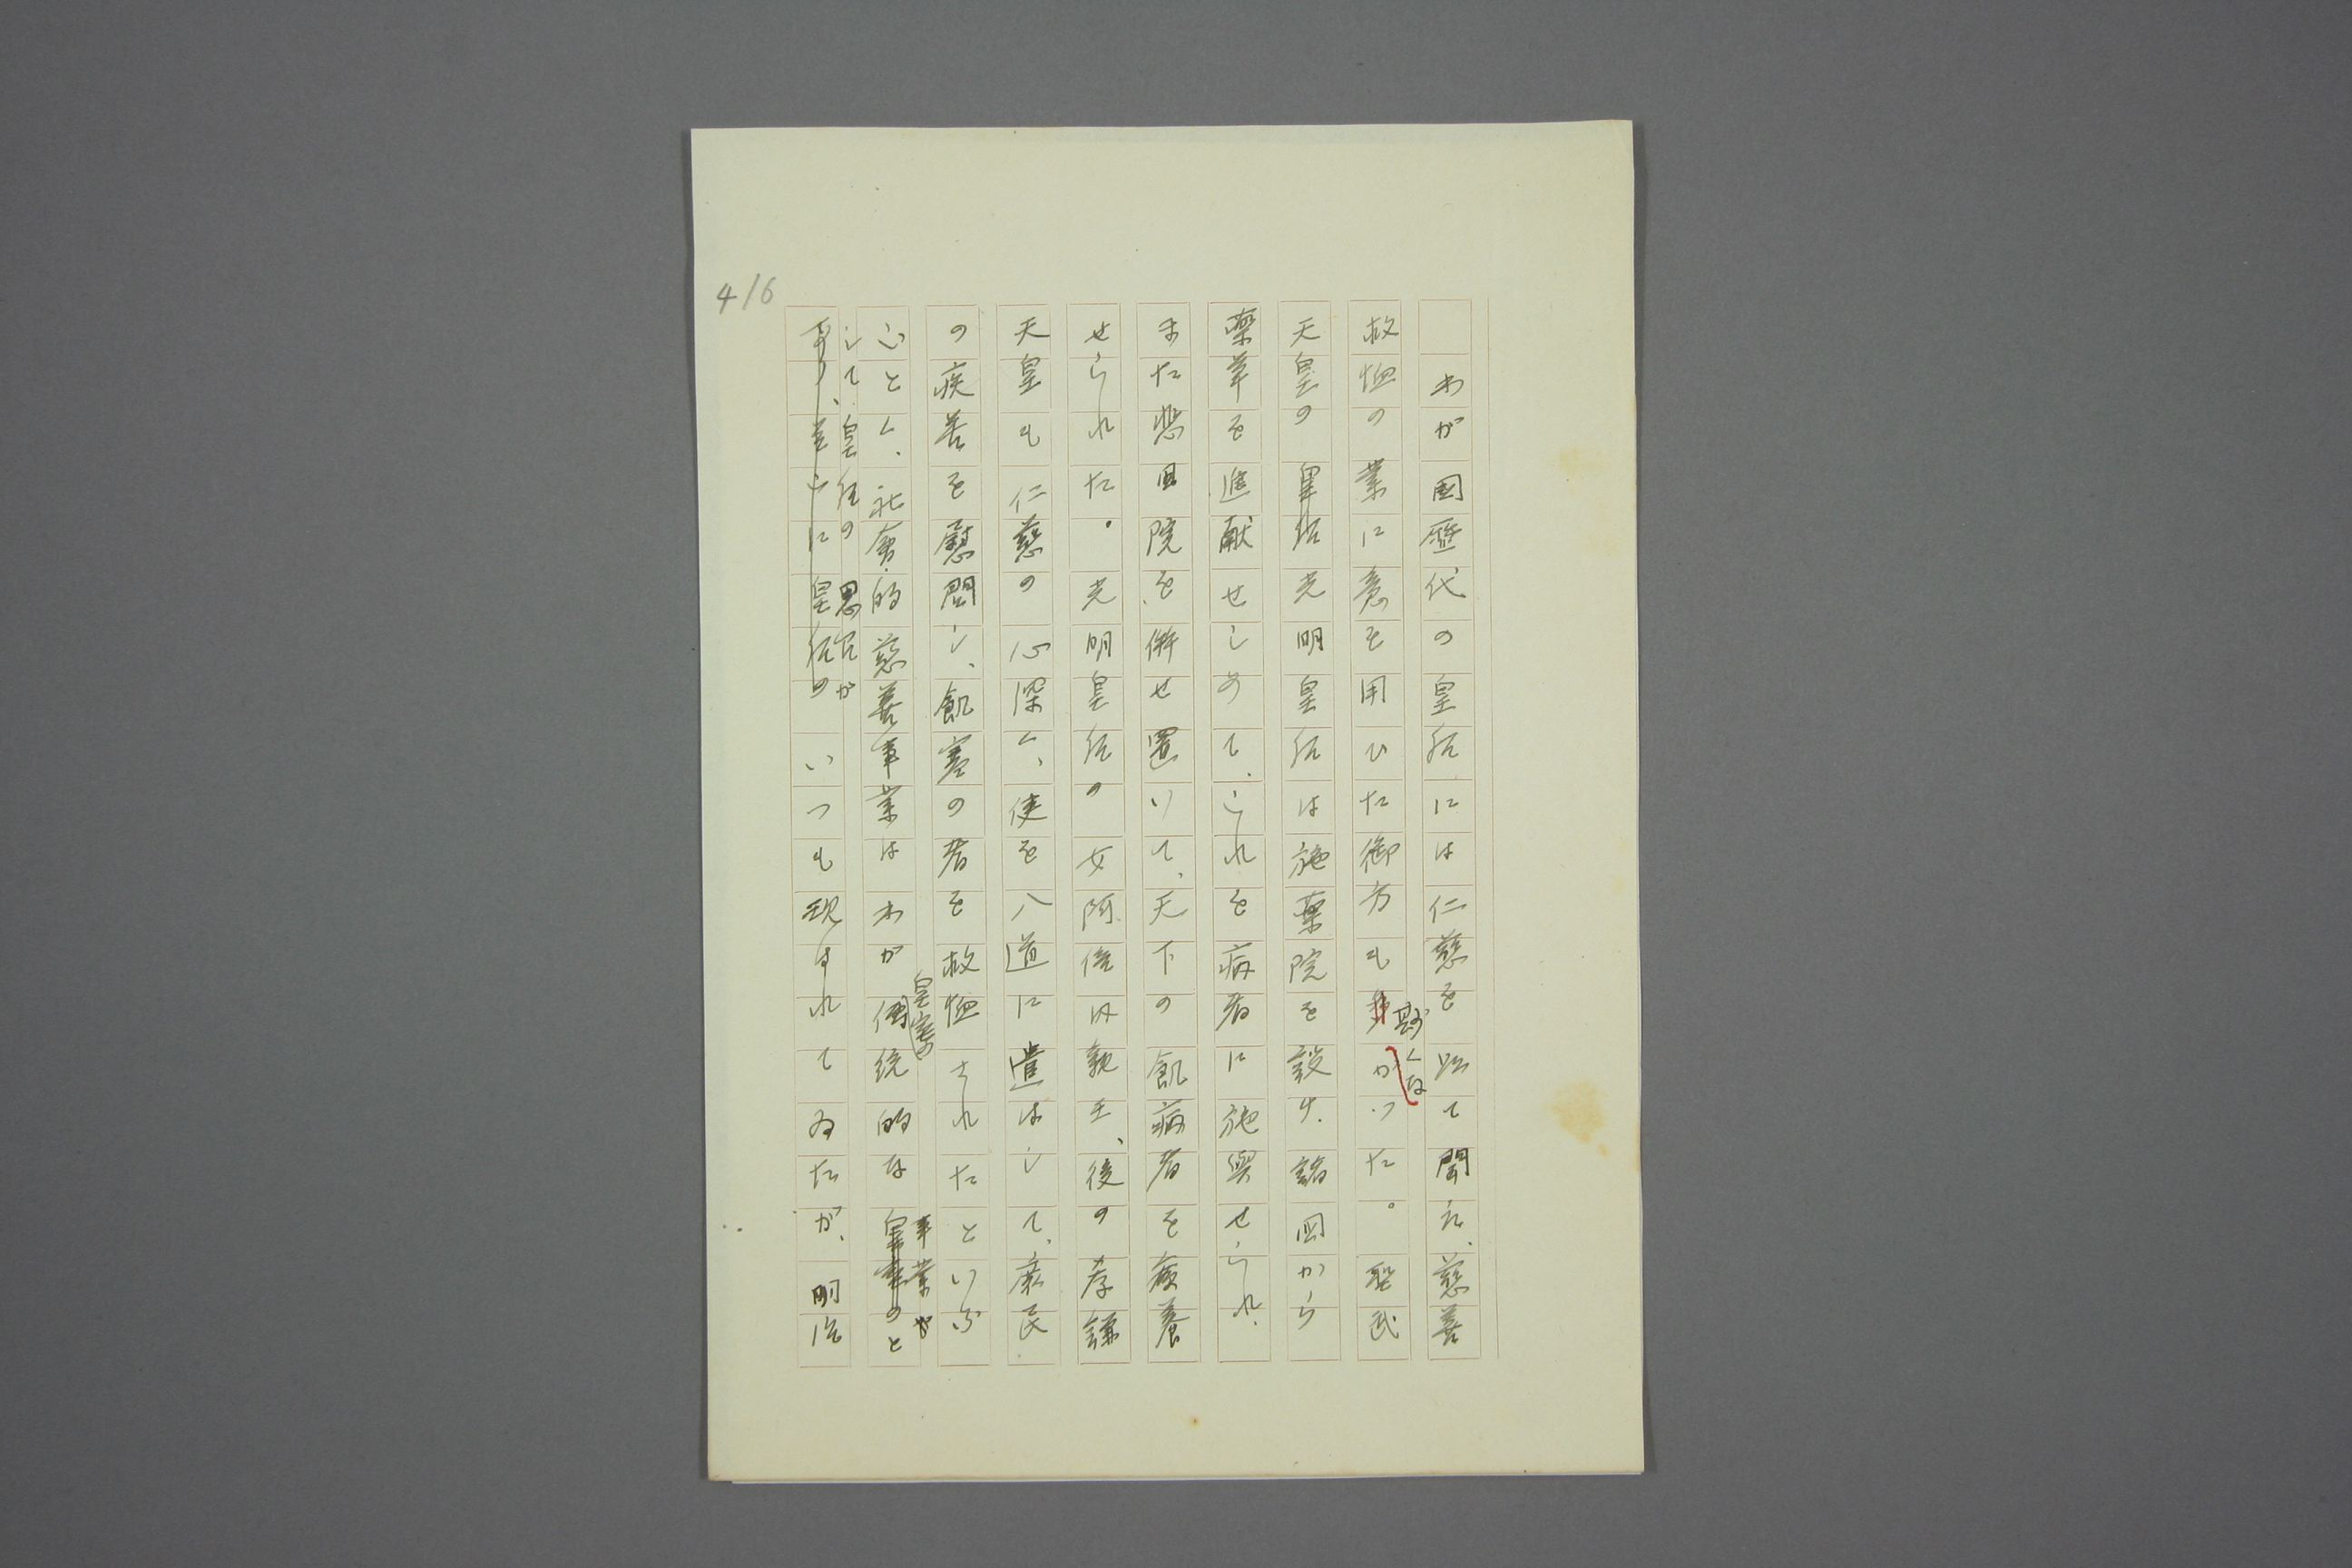 416
わが国歴代の皇后には仁慈を以て聞え、慈善
救恤の業に意を用ひた御方も尠くなかつた。聖武
天皇の皇后光明皇后は施薬院を設け、諸国から
薬草を進献せしめて、これを病者に施与せられ、
また悲田院を併せ置いて、天下の飢病者を療養
せられた。光明皇后の女阿倍内親王、後の孝謙
天皇も仁慈の心深く、使を八道に遣はして、庶民
の疾苦を慰問し、飢寒の者を救恤されたといふ
皇室の 事業
心とく、社会的慈善事業はわが伝統的な皇室のと
して皇后の思召が
いつも現はれてゐたが、明治